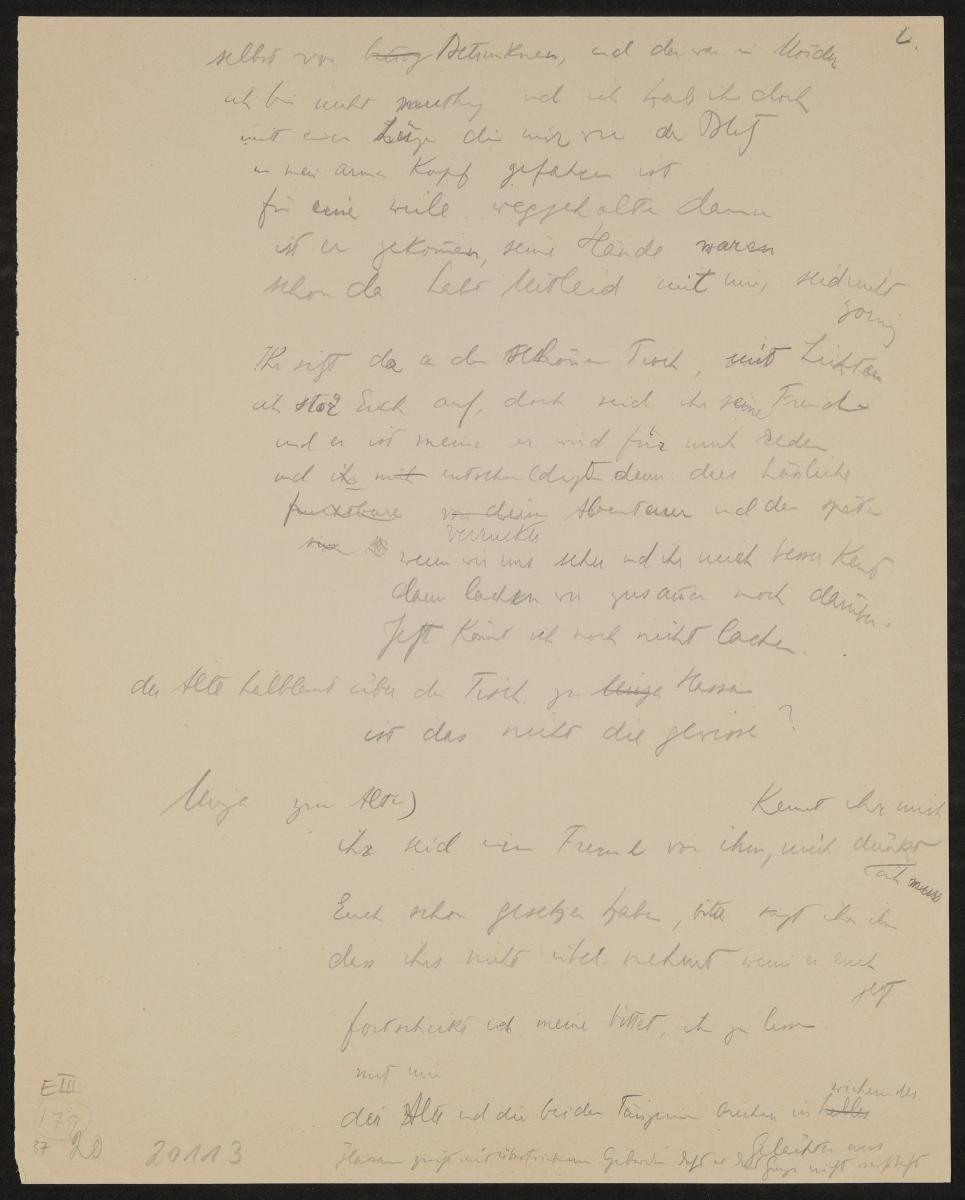 L.
selbst von betrog Betrunknen, und der war ein Mörder
ich bin nicht muthig und ich hab ihn doch
mit einer Lüge die mir wie der Blitz
in mein armen Kopf gefahren ist
für eine weile weggehalten dann
ist er gekomen, seine Hände waren
schon da habt Mitleid mit mir, seid nicht
zornig
Ihr sitzt da an den schönen Tisch, mit Lichtern
ich stör Euch auf, doch seid ihr seine Freunde
und er ist meine er wird für mich reden
und ihr mich entschuldigt denn dies hässliche
furchtbare von dein Abenteuer und den späten
verrückte
wenn wir uns sehn und ihr mich besser kent
dann lachen wir zusamen noch darüber.
Jetzt könnt ich noch nicht lachen.
der Alte halblaut über den Tisch zu Hassan
ist das nicht die gewisse?
zum Alten)
Kennt ihr mich
ihr seid ein Freund von ihm, mich dünkt
ich muss
Euch schon gesehen haben, bitte sagt ihm
dass ihrs nicht übel nehmt wenn er euch
jetzt
fortschickt ich meine bittet, ihn zu lassen
mit mir
der Alte und die beiden Tänzerinnen brechen in helles
Gelächter aus
Hassan zeigt mit übertriebenen Geberden dass er
E III
179
37 20 20113